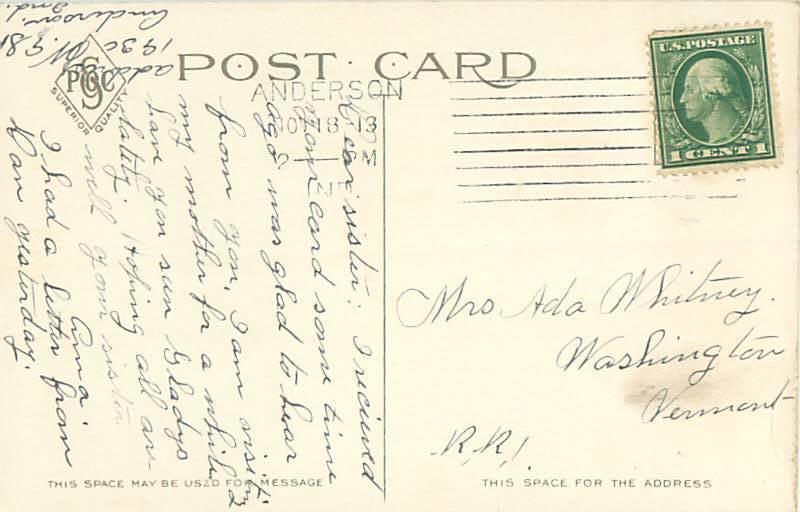 POST CARD
PGC
SUPERIOR QUALITY
U.S. POSTAGE
1 CENT 1
ANDERSON
NOV 18 13
PM
Dear sister: I recieved
your card some time
ago was glad to hear
from you. I am visiting
my mother for a while
have you seen Gladys
lately. Hoping all are
well your sister
Anna.
I had a letter from
Dan yesterday.
address
1930 W. 8 St
Anderson
Ind.
Mrs. Ada Whitney.
Washington
Vermont
R.R.1
THIS SPACE MAY BE USED FOR MESSAGE
THIS SPACE FOR THE ADDRESS